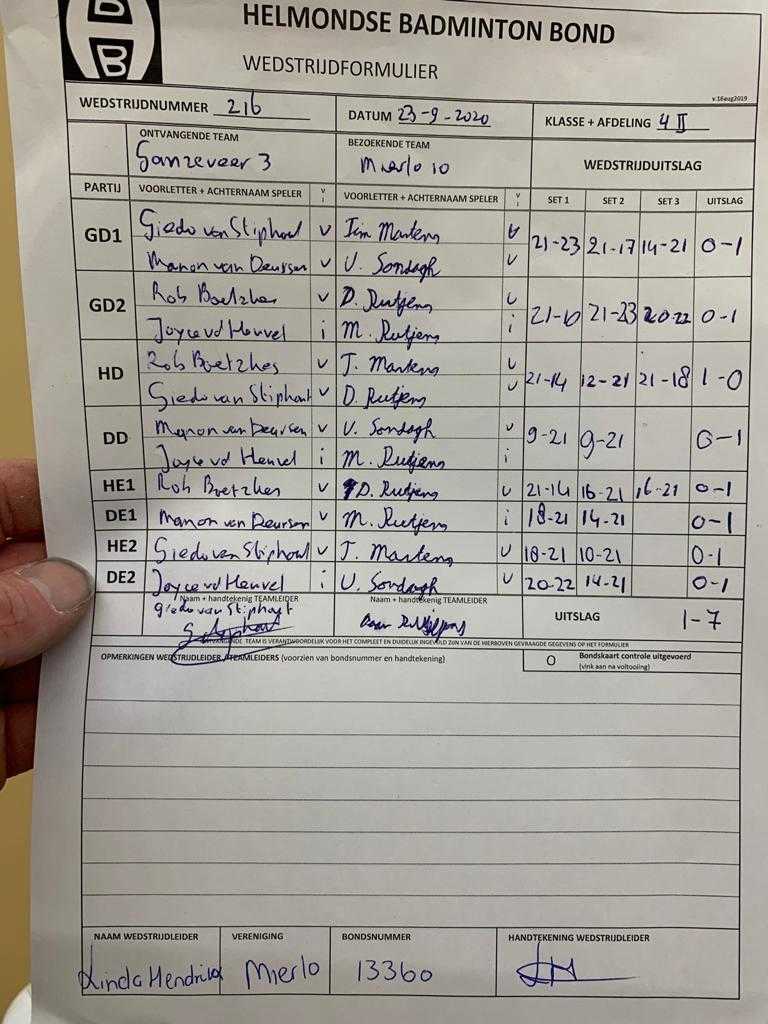 B
B
HELMONDSE BADMINTON BOND
WEDSTRIJDFORMULIER
v.16aug2019
WEDSTRIJDNUMMER 216 DATUM 23-9-2020 KLASSE + AFDELING 4 II
ONTVANGENDE TEAM BEZOEKENDE TEAM WEDSTRIJDUITSLAG
Ganzeveer 3 Mierlo 10
PARTIJ VOORLETTER + ACHTERNAAM SPELER v i VOORLETTER + ACHTERNAAM SPELER v i SET 1 SET 2 SET 3 UITSLAG
GD1 Giedo van Stiphout v Tim Martens v 21-23 21-17 14-21 0-1
Manon van Deursen v V. Sondagh v
GD2 Rob Boetzkes v D. Rutjens v 21-10 21-23 20-22 0-1
Joyce vd Heuvel i M. Rutjens i
HD Rob Boetzkes v T. Martens v 21-14 12-21 21-18 1-0
Giedo van Stiphout v D. Rutjens v
DD Manon van Deursen v V. Sondagh v 9-21 9-21 0-1
Joyce vd Heuvel i M. Rutjens i
HE1 Rob Boetzkes v D. Rutjens v 21-14 16-21 16-21 0-1
DE1 Manon van Deursen v M. Rutjens i 18-21 14-21 0-1
HE2 Giedo van Stiphout v T. Martens v 18-21 10-21 0-1
DE2 Joyce vd Heuvel i V. Sondagh v 20-22 14-21 0-1
Naam + handtekenig TEAMLEIDER Naam + handtekenig TEAMLEIDER UITSLAG 1-7
Giedo van Stiphout
TEAM IS VERANTWOORDELIJK VOOR HET COMPLEET EN DUIDELIJK INGEVULD ZIJN VAN DE HIERBOVEN GEVRAAGDE GEGEVENS OP HET FORMULIER
OPMERKINGEN WEDSTRIJDLEIDER / TEAMLEIDERS (voorzien van bondsnummer en handtekening) O Bondskaart controle uitgevoerd
(vink aan na voltooiing)
NAAM WEDSTRIJDLEIDER VERENIGING BONDSNUMMER HANDTEKENING WEDSTRIJDLEIDER
Linda Hendrikx Mierlo 13360